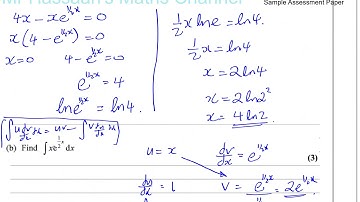 Mr Hassaan's Maths Channel
Sample Assessment Paper
4x - xe^{1/2 x} = 0
x(4 - e^{1/2 x}) = 0
x = 0    4 - e^{1/2 x} = 0
e^{1/2 x} = 4
ln e^{1/2 x} = ln 4.
1/2 x ln e = ln 4.
1/2 x = ln 4
x = 2 ln 4
x = 2 ln 2^2
x = 4 ln 2.
[∫u dv/dx dx = uv - ∫v du/dx dx]
(b) Find ∫xe^{1/2 x} dx
(3)
u = x    dv/dx = e^{1/2 x}
du/dx = 1    V = e^{1/2 x}/ = 2e^{1/2 x}.